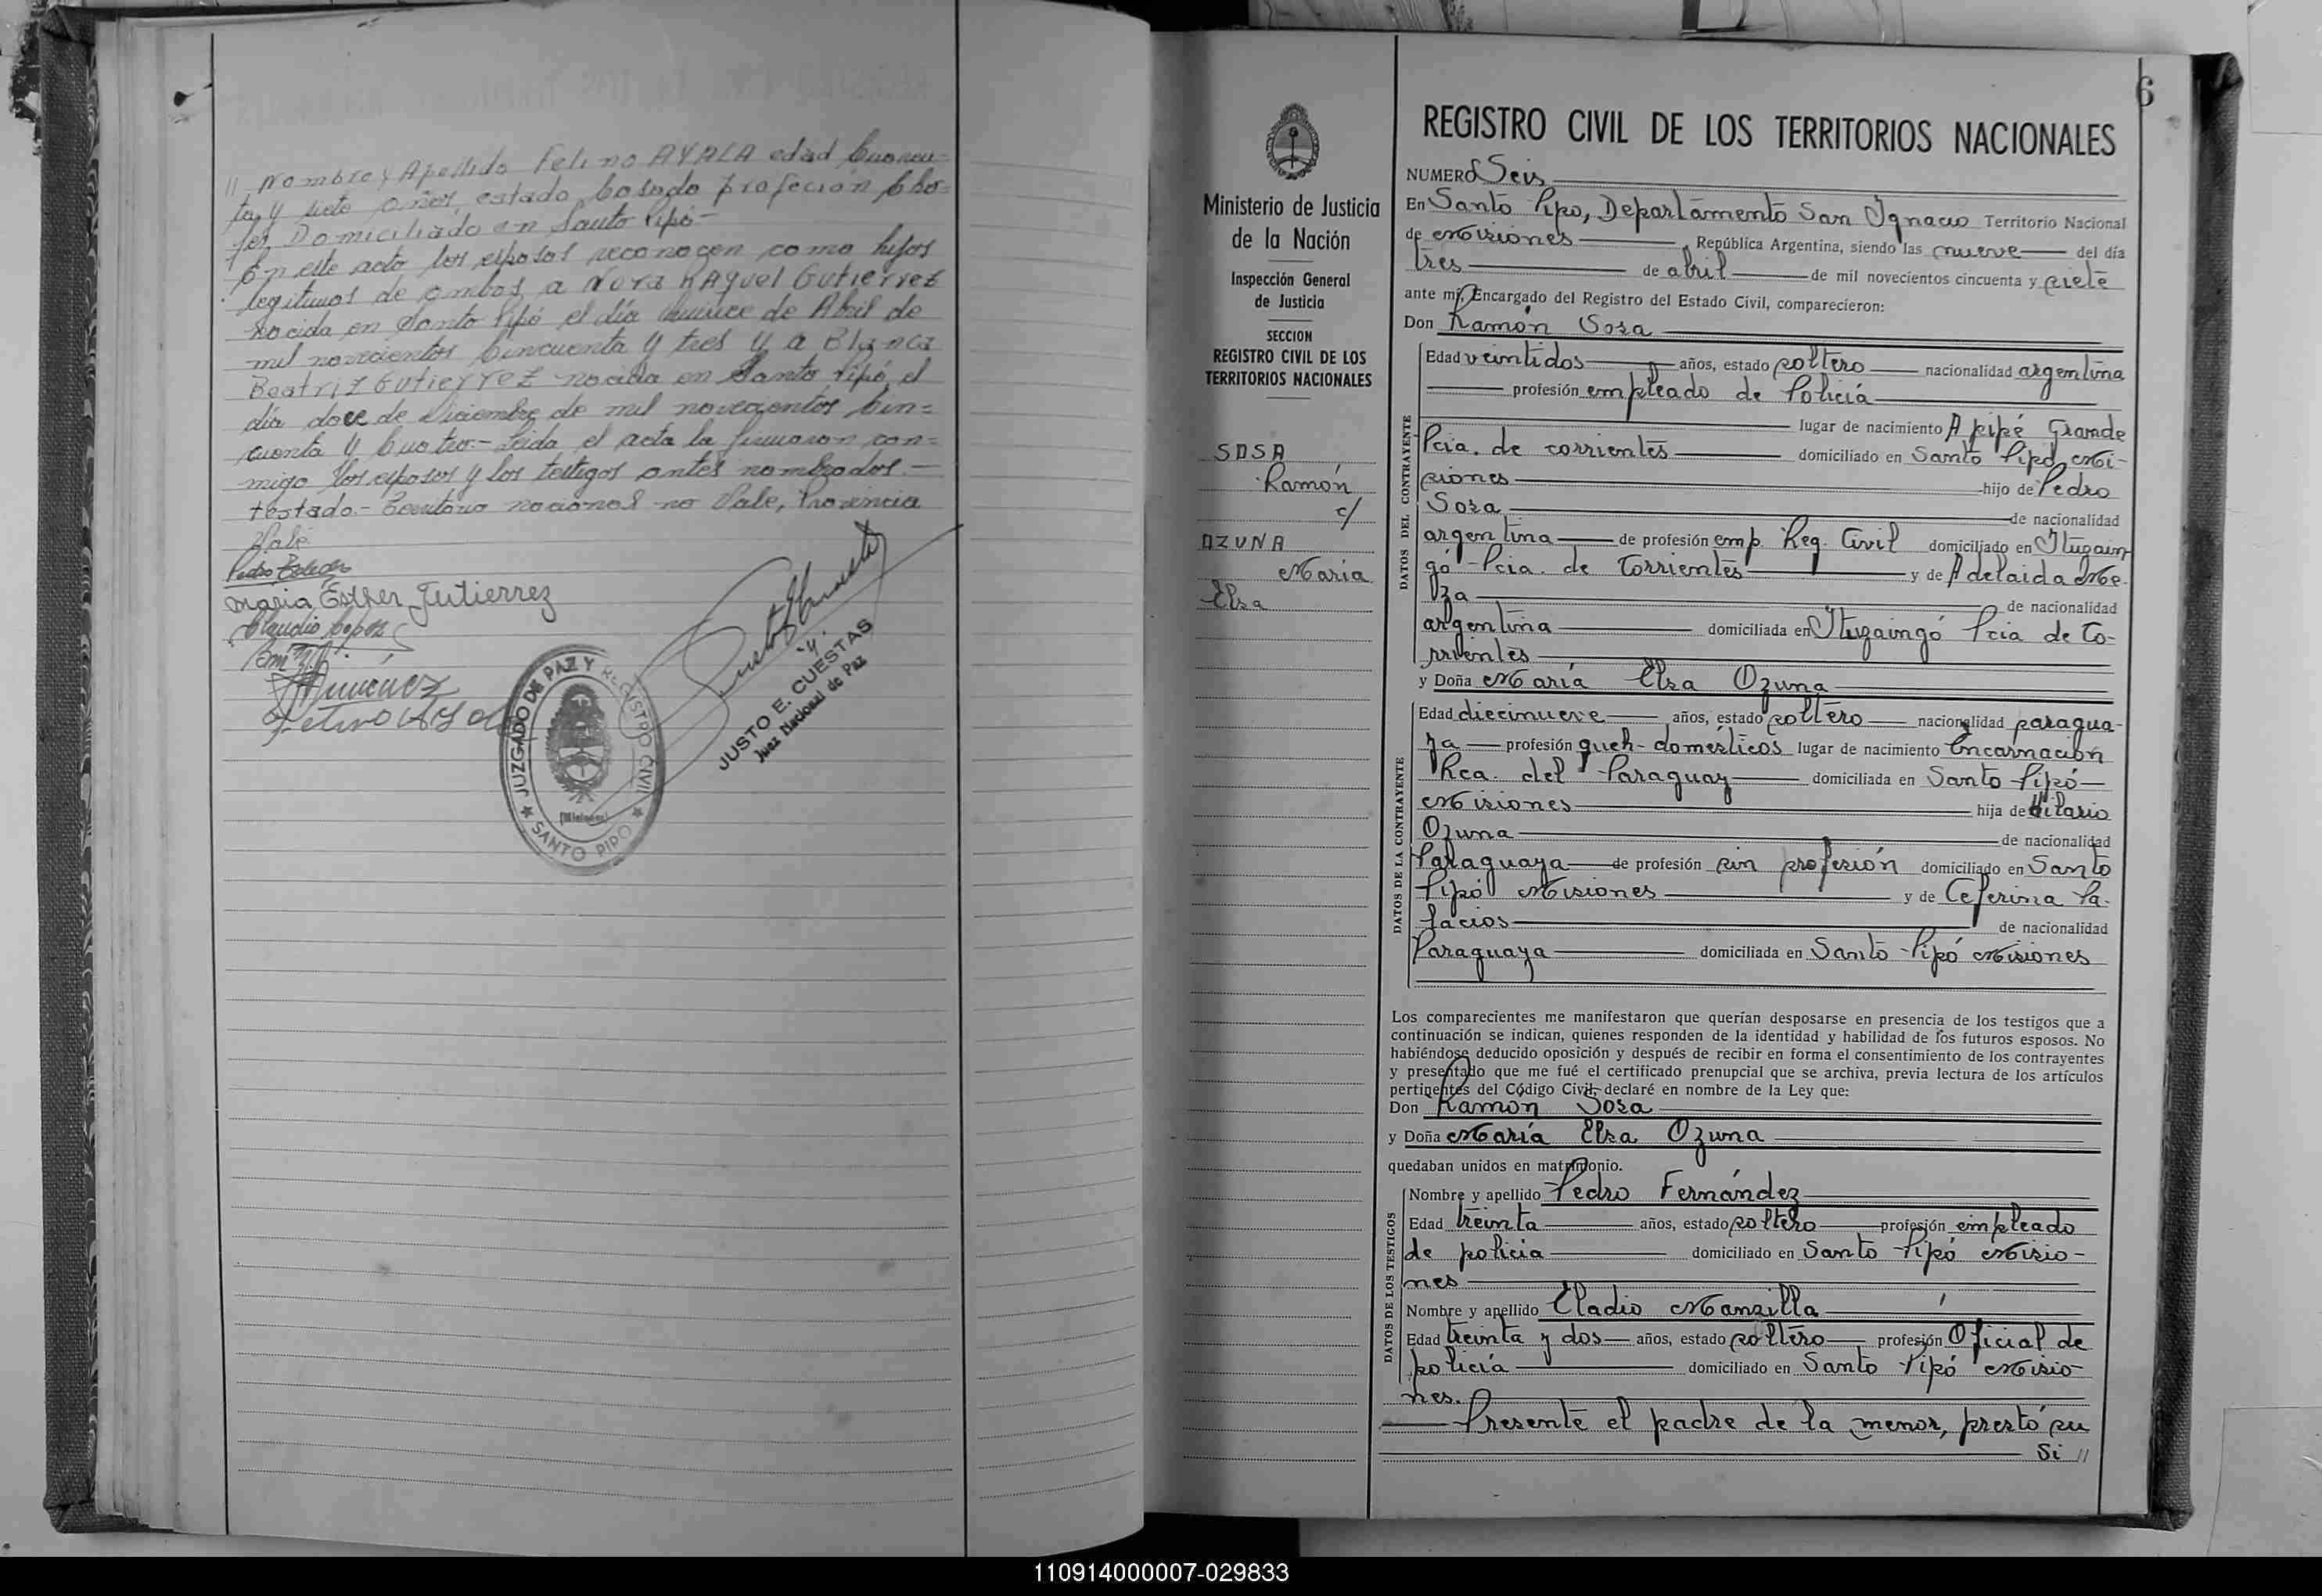 // Nombre y Apellido Felino AYALA edad Cuaren-
ta y siete años estado Casado profeción Cho-
fer Domiciliado en Santo Pipó-
En este acto los esposos reconocen como hijos
legitimos de ambos a Nora RAquel Gutierrez
nacida en Santo Pipó el día Quince de Abril de
mil novecientos Cincuenta y tres y a Blanca
Beatriz Gutierrez nacida en Santo Pipó el
día doce de Diciembre de mil novecientos Cin=
cuenta y Cuatro.- Leida el acta la firmaron con=
migo los esposos y los testigos antes nombrados.-
testado.- Territorio nacional no Vale, Provincia
Vale
Pedro
Maria Esther Gutierrez
Claudio Lopez
Jimenez
Felino Ayala
JUZGADO DE PAZ Y REGISTRO CIVIL
(Misiones)
★ SANTO PIPO ★
JUSTO E. CUESTAS
Juez Nacional de Paz
6
Ministerio de Justicia
de la Nación
Inspección General
de Justicia
SECCION
REGISTRO CIVIL DE LOS
TERRITORIOS NACIONALES
SOSA
Ramón
c/
OZUNA
María
Elsa
REGISTRO CIVIL DE LOS TERRITORIOS NACIONALES
NUMERO Seis
En Santo Pipo, Departamento San Ignacio Territorio Nacional
de Misiones, República Argentina, siendo las nueve del día
tres de abril de mil novecientos cincuenta y siete
ante mí, Encargado del Registro del Estado Civil, comparecieron:
Don Ramón Sosa
DATOS DEL CONTRAYENTE
Edad veintidos años, estado soltero nacionalidad argentina
profesión empleado de Policía
lugar de nacimiento Apipé Grande
Pcia. de corrientes domiciliado en Santo Pipó, Mi-
siones hijo de Pedro
Sosa de nacionalidad
argentina de profesión emp. Reg. Civil domiciliado en Ituzain
gó Pcia. de Corrientes y de Adelaida Me-
za de nacionalidad
argentina domiciliada en Ituzaingó Pcia de Co-
rrientes
y Doña María Elsa Ozuna
DATOS DE LA CONTRAYENTE
Edad diecinueve años, estado soltero nacionalidad paragua-
ya profesión queh-domésticos lugar de nacimiento Encarnación
Rca. del Paraguay domiciliada en Santo Pipó-
Misiones hija de Hilario
Ozuna de nacionalidad
Paraguaya de profesión sin profesión domiciliado en Santo
Pipó Misiones y de Ceferina Pa-
lacios de nacionalidad
Paraguaya domiciliada en Santo Pipó Misiones
Los comparecientes me manifestaron que querían desposarse en presencia de los testigos que a
continuación se indican, quienes responden de la identidad y habilidad de los futuros esposos. No
habiéndose deducido oposición y después de recibir en forma el consentimiento de los contrayentes
y presentado que me fué el certificado prenupcial que se archiva, previa lectura de los artículos
pertinentes del Código Civil, declaré en nombre de la Ley que:
Don Ramón Sosa
y Doña María Elsa Ozuna
quedaban unidos en matrimonio.
DATOS DE LOS TESTIGOS
Nombre y apellido Pedro Fernández
Edad treinta años, estado soltero profesión empleado
de policia domiciliado en Santo Pipó Misio-
nes
Nombre y apellido Eladio Mansilla
Edad treinta y dos años, estado soltero profesión Oficial de
policía domiciliado en Santo Pipó Misio-
nes.
Presente el padre de la menor, prestó su
Si //
110914000007-029833